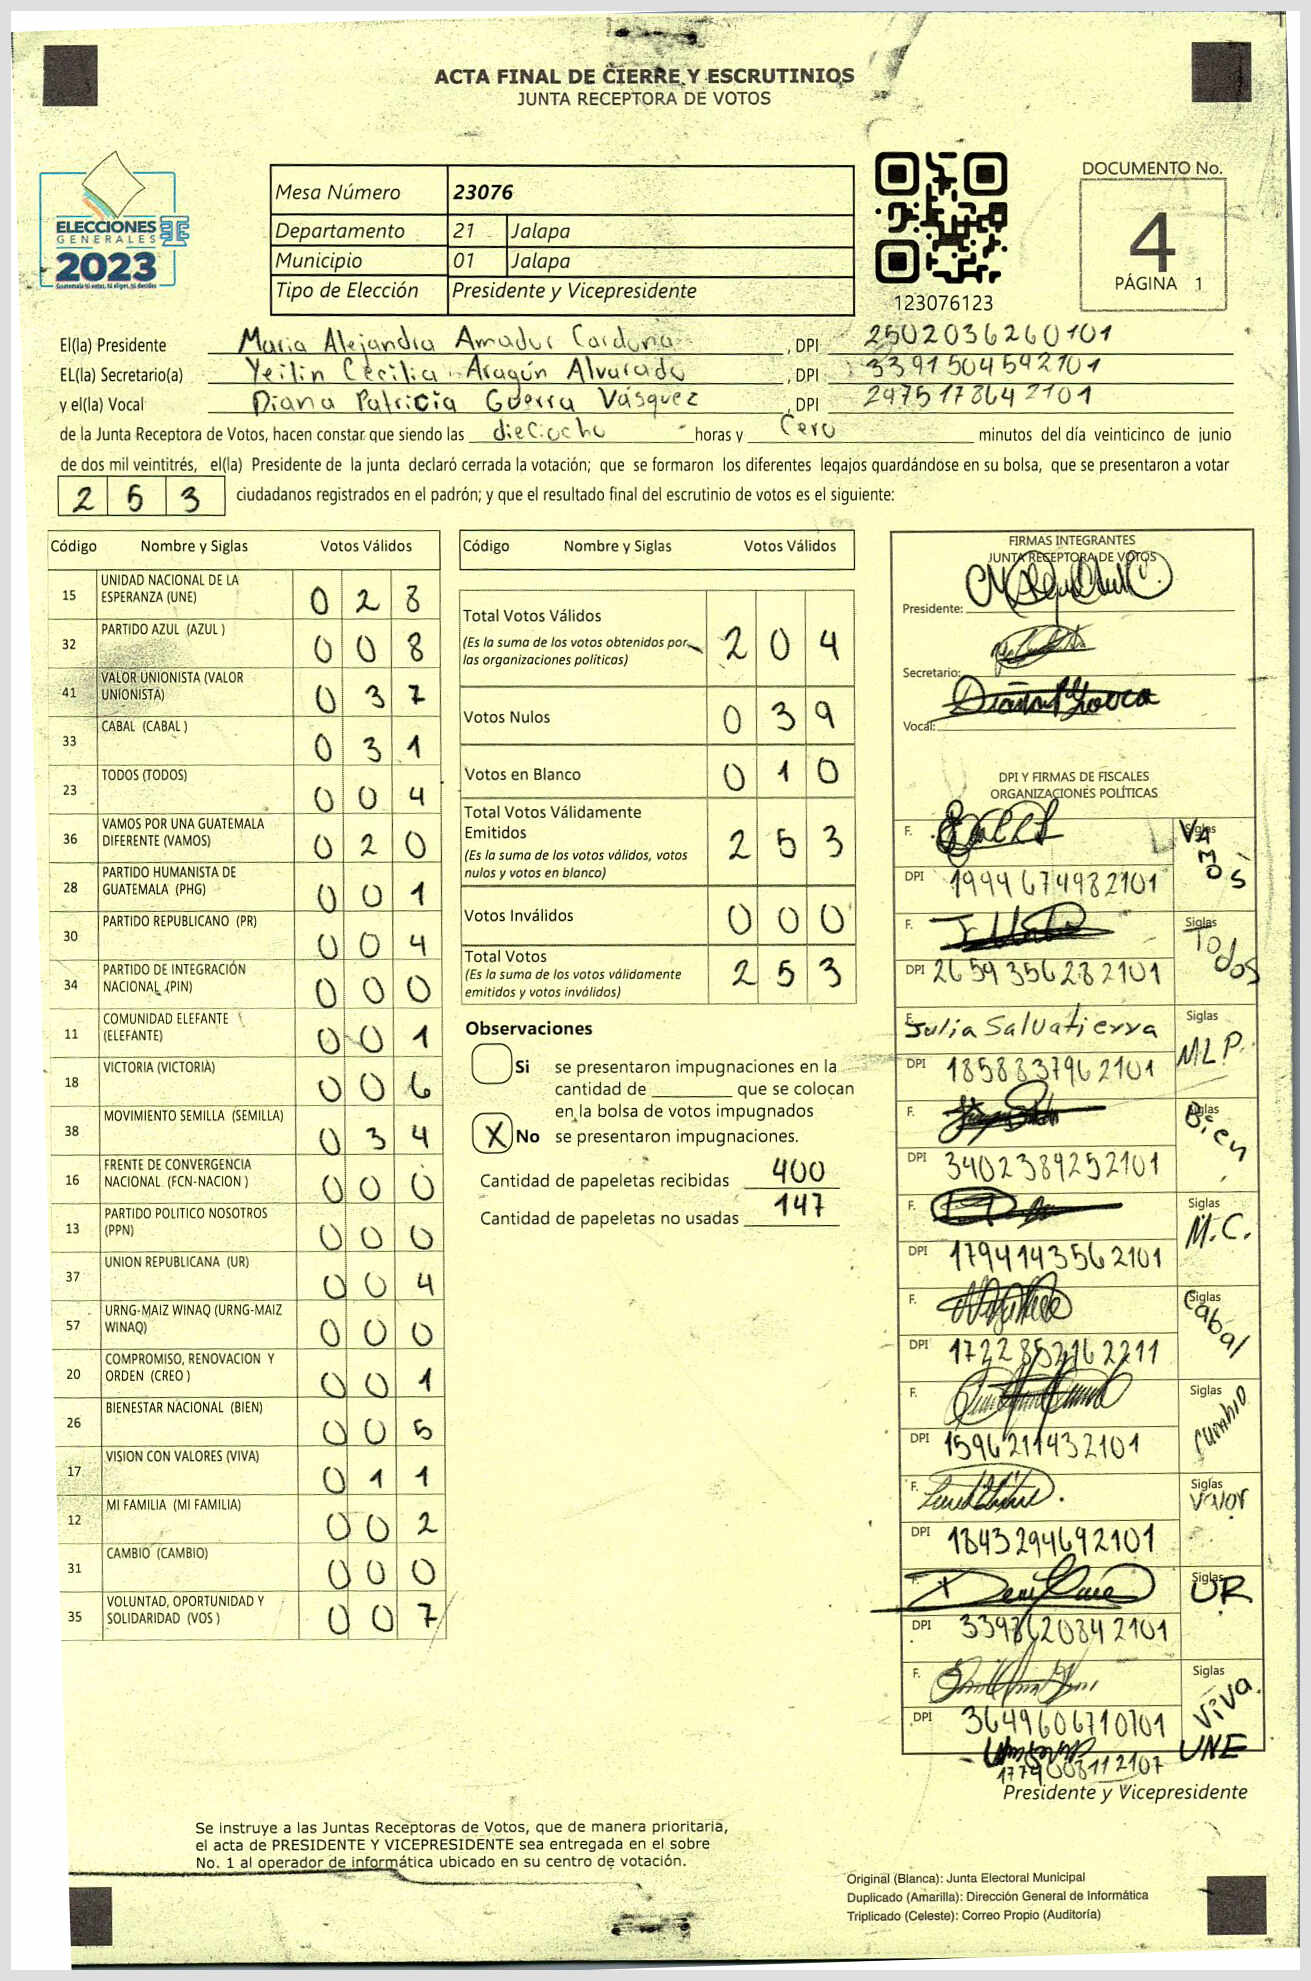 ACTA FINAL DE CIERRE Y ESCRUTINIOS
JUNTA RECEPTORA DE VOTOS
ELECCIONES
GENERALES
2023
Guatemala tú votas, tú eliges, tú decides
Mesa Número 23076
Departamento 21 Jalapa
Municipio 01 Jalapa
Tipo de Elección Presidente y Vicepresidente
123076123
DOCUMENTO No.
4
PÁGINA 1
El(la) Presidente Maria Alejandra Amador Cardona , DPI 2502036260101
EL(la) Secretario(a) Yeilin Cecilia Aragón Alvarado , DPI 3391504542101
y el(la) Vocal Diana Patricia Guerra Vásquez , DPI 2975178642101
de la Junta Receptora de Votos, hacen constar que siendo las dieciocho horas y Cero minutos del día veinticinco de junio
de dos mil veintitrés, el(la) Presidente de la junta declaró cerrada la votación; que se formaron los diferentes legajos guardándose en su bolsa, que se presentaron a votar
2 5 3 ciudadanos registrados en el padrón; y que el resultado final del escrutinio de votos es el siguiente:
Código Nombre y Siglas Votos Válidos
15 UNIDAD NACIONAL DE LA ESPERANZA (UNE) 0 2 8
32 PARTIDO AZUL (AZUL ) 0 0 8
41 VALOR UNIONISTA (VALOR UNIONISTA) 0 3 7
33 CABAL (CABAL ) 0 3 1
23 TODOS (TODOS) 0 0 4
36 VAMOS POR UNA GUATEMALA DIFERENTE (VAMOS) 0 2 0
28 PARTIDO HUMANISTA DE GUATEMALA (PHG) 0 0 1
30 PARTIDO REPUBLICANO (PR) 0 0 4
34 PARTIDO DE INTEGRACIÓN NACIONAL (PIN) 0 0 0
11 COMUNIDAD ELEFANTE (ELEFANTE) 0 0 1
18 VICTORIA (VICTORIA) 0 0 6
38 MOVIMIENTO SEMILLA (SEMILLA) 0 3 4
16 FRENTE DE CONVERGENCIA NACIONAL (FCN-NACION ) 0 0 0
13 PARTIDO POLITICO NOSOTROS (PPN) 0 0 0
37 UNION REPUBLICANA (UR) 0 0 4
57 URNG-MAIZ WINAQ (URNG-MAIZ WINAQ) 0 0 0
20 COMPROMISO, RENOVACION Y ORDEN (CREO ) 0 0 1
26 BIENESTAR NACIONAL (BIEN) 0 0 5
17 VISION CON VALORES (VIVA) 0 1 1
12 MI FAMILIA (MI FAMILIA) 0 0 2
31 CAMBIO (CAMBIO) 0 0 0
35 VOLUNTAD, OPORTUNIDAD Y SOLIDARIDAD (VOS ) 0 0 7
Código Nombre y Siglas Votos Válidos
Total Votos Válidos 2 0 4
(Es la suma de los votos obtenidos por
las organizaciones políticas)
Votos Nulos 0 3 9
Votos en Blanco 0 1 0
Total Votos Válidamente
Emitidos 2 5 3
(Es la suma de los votos válidos, votos
nulos y votos en blanco)
Votos Inválidos 0 0 0
Total Votos 2 5 3
(Es la suma de los votos válidamente
emitidos y votos inválidos)
Observaciones
Si se presentaron impugnaciones en la
cantidad de ________ que se colocan
en la bolsa de votos impugnados
X No se presentaron impugnaciones.
Cantidad de papeletas recibidas 400
Cantidad de papeletas no usadas 147
FIRMAS INTEGRANTES
JUNTA RECEPTORA DE VOTOS
Presidente:
Secretario:
Vocal:
DPI Y FIRMAS DE FISCALES
ORGANIZACIONES POLÍTICAS
F. Siglas VAMOS
DPI 1994674982101
F. Siglas Todos
DPI 2659356282101
F. Julia Salvatierra Siglas MLP.
DPI 1858837962101
F. Siglas Bien
DPI 3402389252101
F. Siglas M.C.
DPI 1794143562101
F. Siglas Cabal
DPI 1722852162211
F. Siglas Cambio
DPI 1596211432101
F. Siglas Valor
DPI 1843294692101
F. Siglas UR
DPI 3398620842101
F. Siglas Viva
DPI 3649606710101
UNE
Presidente y Vicepresidente
Se instruye a las Juntas Receptoras de Votos, que de manera prioritaria,
el acta de PRESIDENTE Y VICEPRESIDENTE sea entregada en el sobre
No. 1 al operador de informática ubicado en su centro de votación.
Original (Blanca): Junta Electoral Municipal
Duplicado (Amarilla): Dirección General de Informática
Triplicado (Celeste): Correo Propio (Auditoría)